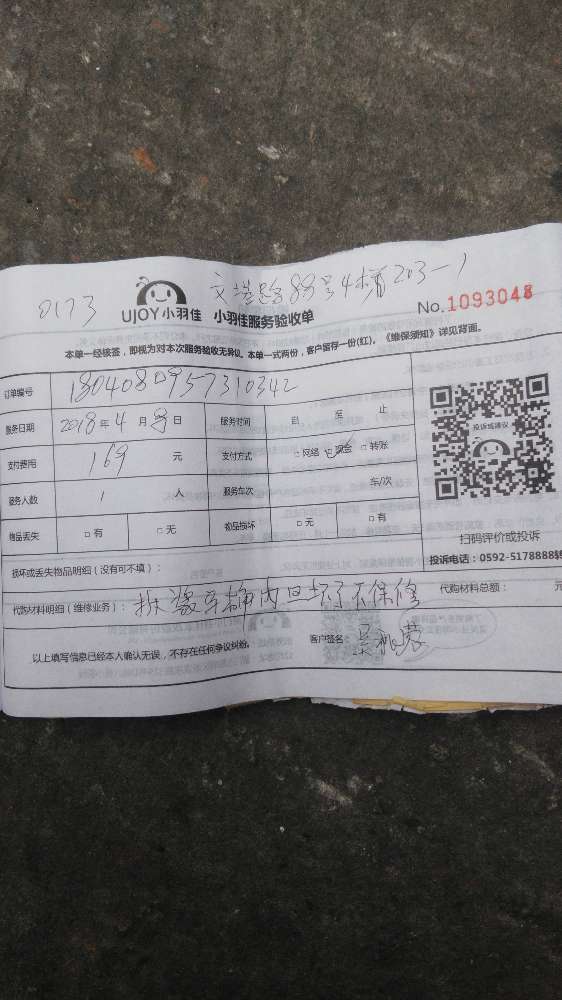 0173
文塔路88号4梯203-1
UJOY小羽佳 小羽佳服务验收单
No.1093048
本单一经核签,即视为对本次服务验收无异议。本单一式两份,客户留存一份(红)。《维保须知》详见背面。
订单编号 1804080957310342
服务日期 2018年4月8日 服务时间 自 至 止
支付费用 169 元 支付方式 □网络 □现金 □转账
服务人数 1 人 服务车次 车/次
物品丢失 □有 □无 物品损坏 □无 □有
投诉或建议
扫码评价或投诉
投诉电话:0592-5178888转
损坏或丢失物品明细(没有可不填):
代购材料明细(维修业务): 内 坏了不保修
代购材料总额: 元
以上填写信息已经本人确认无误,不存在任何争议纠纷。
客户签名: